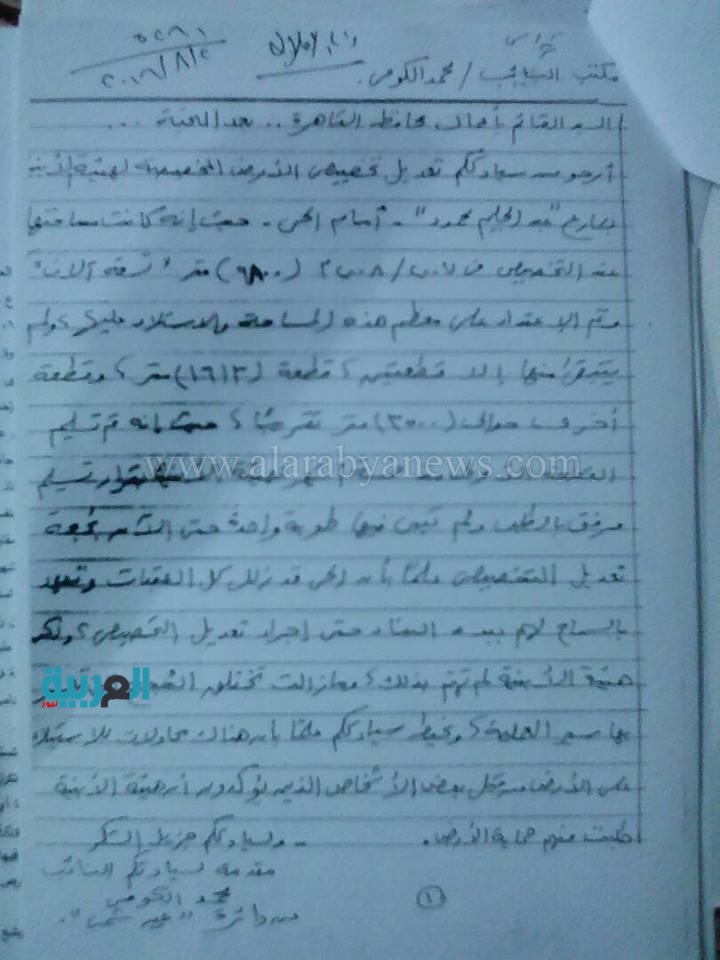 مكتب النائب / محمد الكومى
٢٠١٦/٨/٢
السيد القائم بأعمال محافظ القاهرة .. بعد التحية ...
أرجو من سيادتكم تعديل تخصيص الأرض المخصصة لهيئة الأبنية
بشارع "عبد الحليم محمود" - أمام الحى - حيث إنه كانت مساحتها
عند التخصيص فى ٢٠٠٨/٢٠٠٧ (٩٨٠٠) متر
وتم الإعتداء على معظم هذه المساحة والاستلاء عليها، ولم
يتبقى منها إلا قطعتين، قطعة (١٦١٣) متر، وقطعة
أخرى حوالى (٣٥٠٠) متر تقريبًا، حيث إنه تم تسليم
www.alarabyanews.com
تسليم
مرفق بالطلب ولم تبنى فيها طوبة واحدة حتى الآن بحجة
تعديل التخصيص علمًا بأن الحى قد ذلل كل العقبات وتعهد
بالسماح لهم ببدء البناء حتى إجراء تعديل التخصيص، ولكن
هيئة الأبنية لم تهتم بذلك، ومازالت تختلق
العربية نيوز
بها سير العملية، ونحيط سيادتكم علمًا بأن هناك محاولات للاستيلاء
على الأرض من قبل بعض الأشخاص الذين يؤكدون أن هيئة الأبنية
طلبت منهم حماية الأرض. - ولسيادتكم جزيل الشكر
مقدمه لسيادتكم النائب
محمد الكومى
عن دائرة "عين شمس".
١